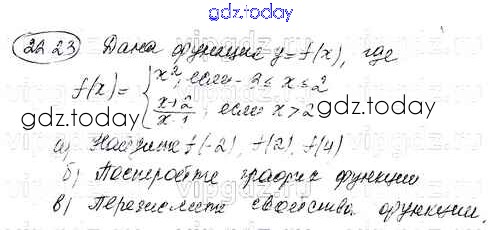 gdz.today
22 23 Дана функция y=f(x), где
f(x)= { x², если -2 ≤ x ≤ 2
x+2/x-1, если x>2
gdz.today gdz.today
а) Найдите f(-2), f(2), f(4)
б) Постройте график функции
в) Перечислите свойства функции.